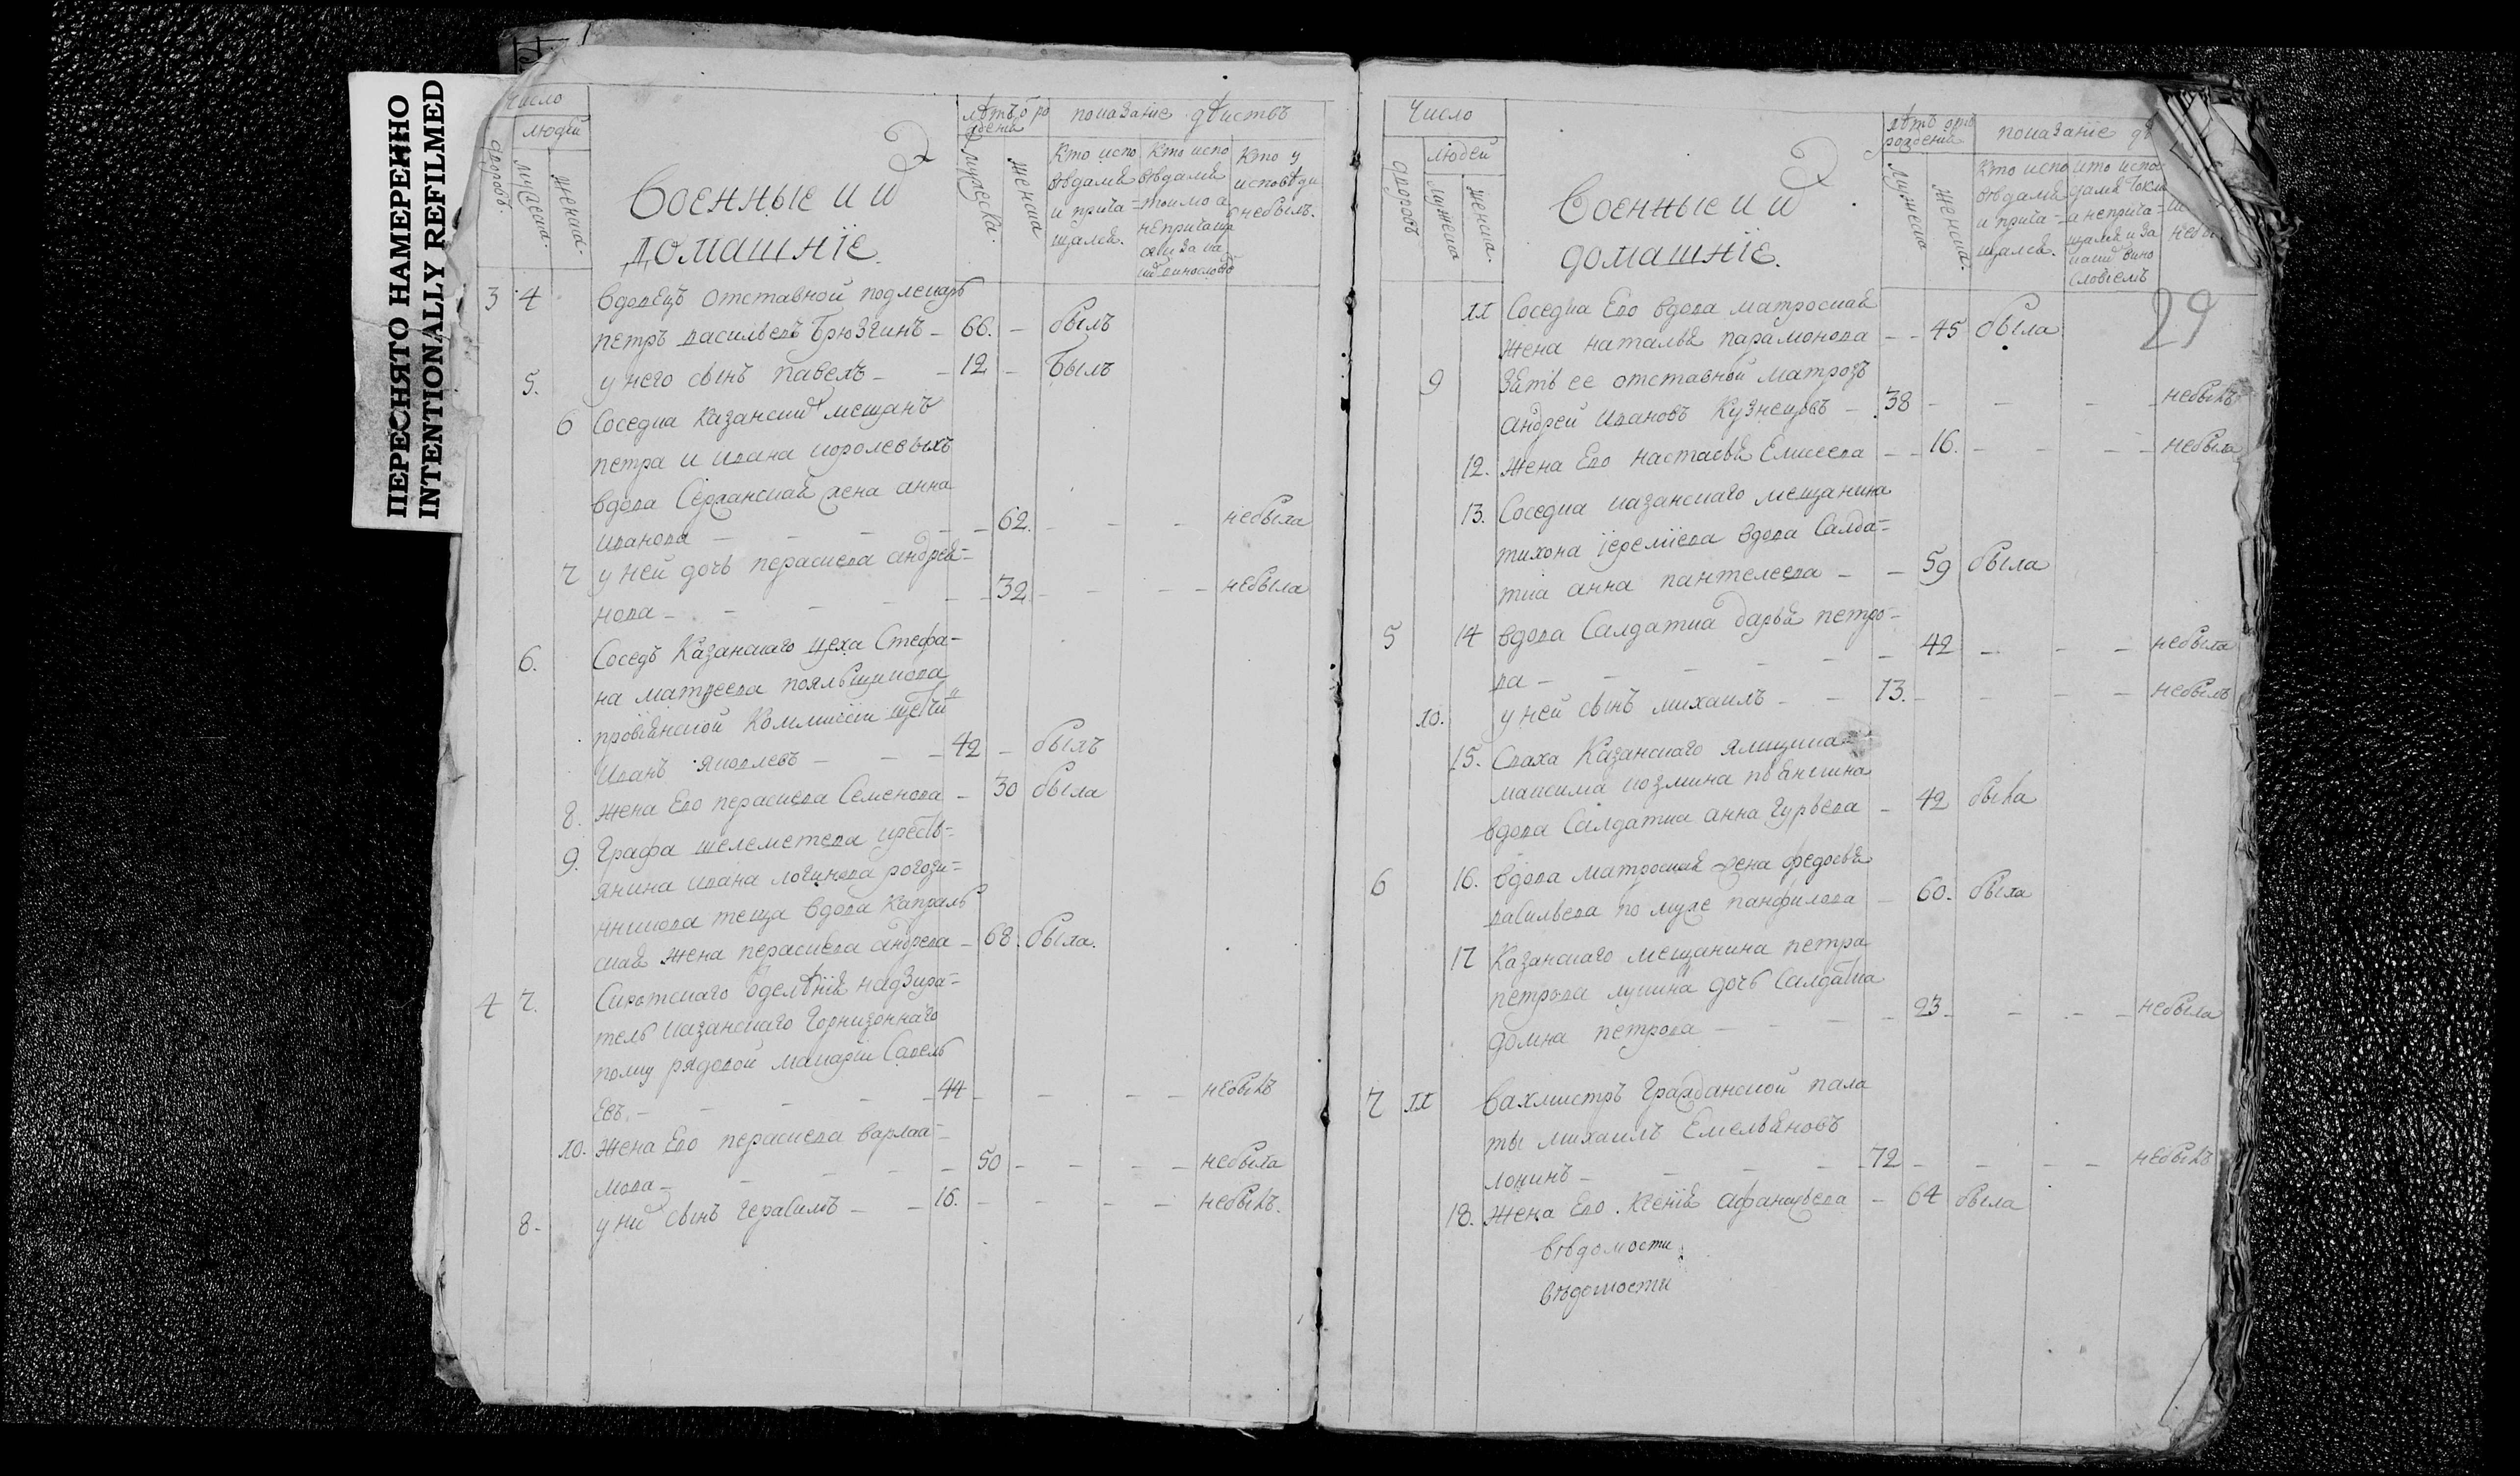 ПЕРЕСНЯТО НАМЕРЕННО
INTENTIONALLY REFILMED
Число
людей
дворовъ.
мужеска.
женска.
Военные и ихъ
домашніе.
лѣтъ о ро
жденія
мужеска.
женска
показаніе дѣиствъ
Кто испо
вѣдался
и прича
щался.
Кто испо
вѣдался
токмо а
непричаща
Кто у
исповѣди
небылъ.
3 4 вдовецъ отставной подлекарь
петръ васильевъ Брюзгинъ - 66. - былъ
5. у него сынъ павелъ - - 12 - былъ
6 Соседка казански мещанъ
петра и ивана королевыхъ
вдова Сержанская жена анна
иванова - - - - - 62. - - - небыла
7 у ней дочь параскева андрея-
нова - - - - - 32. - - - - небыла
6. Соседъ Казанскаго цеха Стефа-
на матвеева
провиянской Коммисіи
Иванъ яковлевъ - - - 42 - былъ
8. жена Ево параскева Семенова - 30 была
9. Графа шелеметева кресть-
янина ивана логинова рогози-
нникова теща вдова капраль
ская жена параскева андреева - 68. была.
4 7. Сиротскаго отделѣнія надзира-
тель казанскаго горнизоннаго
полку рядовой макаріи Савель
евъ. - - - - - 44 - - - - - небылъ
10. жена Ево параскева варлаа-
мова - - - - - 50 - - - - небыла
8- у них сынъ герасимъ - - 16. - - - - небылъ.
Число
людей
дворовъ
мужеска
женска.
Военные и ихъ
домашніе.
лѣтъ отъ
рожденія
мужеска
женска.
показаніе дѣ
Кто испо
вѣдался
и прича-
щался.
кто испов
дался токмо
и неприча-
щался и за
каким вино
словіемъ
29
11 Соседка Ево вдова матроская
жена наталья парамонова - - 45 была
9 зять ее отставной матрозъ
андрей ивановъ Кузнецовъ - 38 - - - - небылъ
12. жена Ево настасья Елисеева - - 16. - - - - небыла
13. Соседка казанскаго мещанина
тихона іереміева вдова Салда-
тка анна пантелеева - - 59 была
5 14 вдова Салдатка дарья петро-
ва - - - - - - 42 - - - небыла
10. у ней сынъ михаилъ - - 13. - - - - небылъ
15. Сваха Казанскаго ямщика
максима козмина
вдова Салдатка анна гурьева - 42 была
6 16. вдова матроская жена федосья
васильева по муже панфилова - 60. была
17 Казанскаго мещанина петра
петрова лукина дочь Салдатка
домна петрова - - - - 23 - - - - небыла
7 11 Вахмистръ гражданской пала
ты михаилъ Емельяновъ
лонинъ - - - - 72 - - - - небылъ
18. жена Ево ксенія афанасьева - 64 была
вѣдомости.
вѣдомости